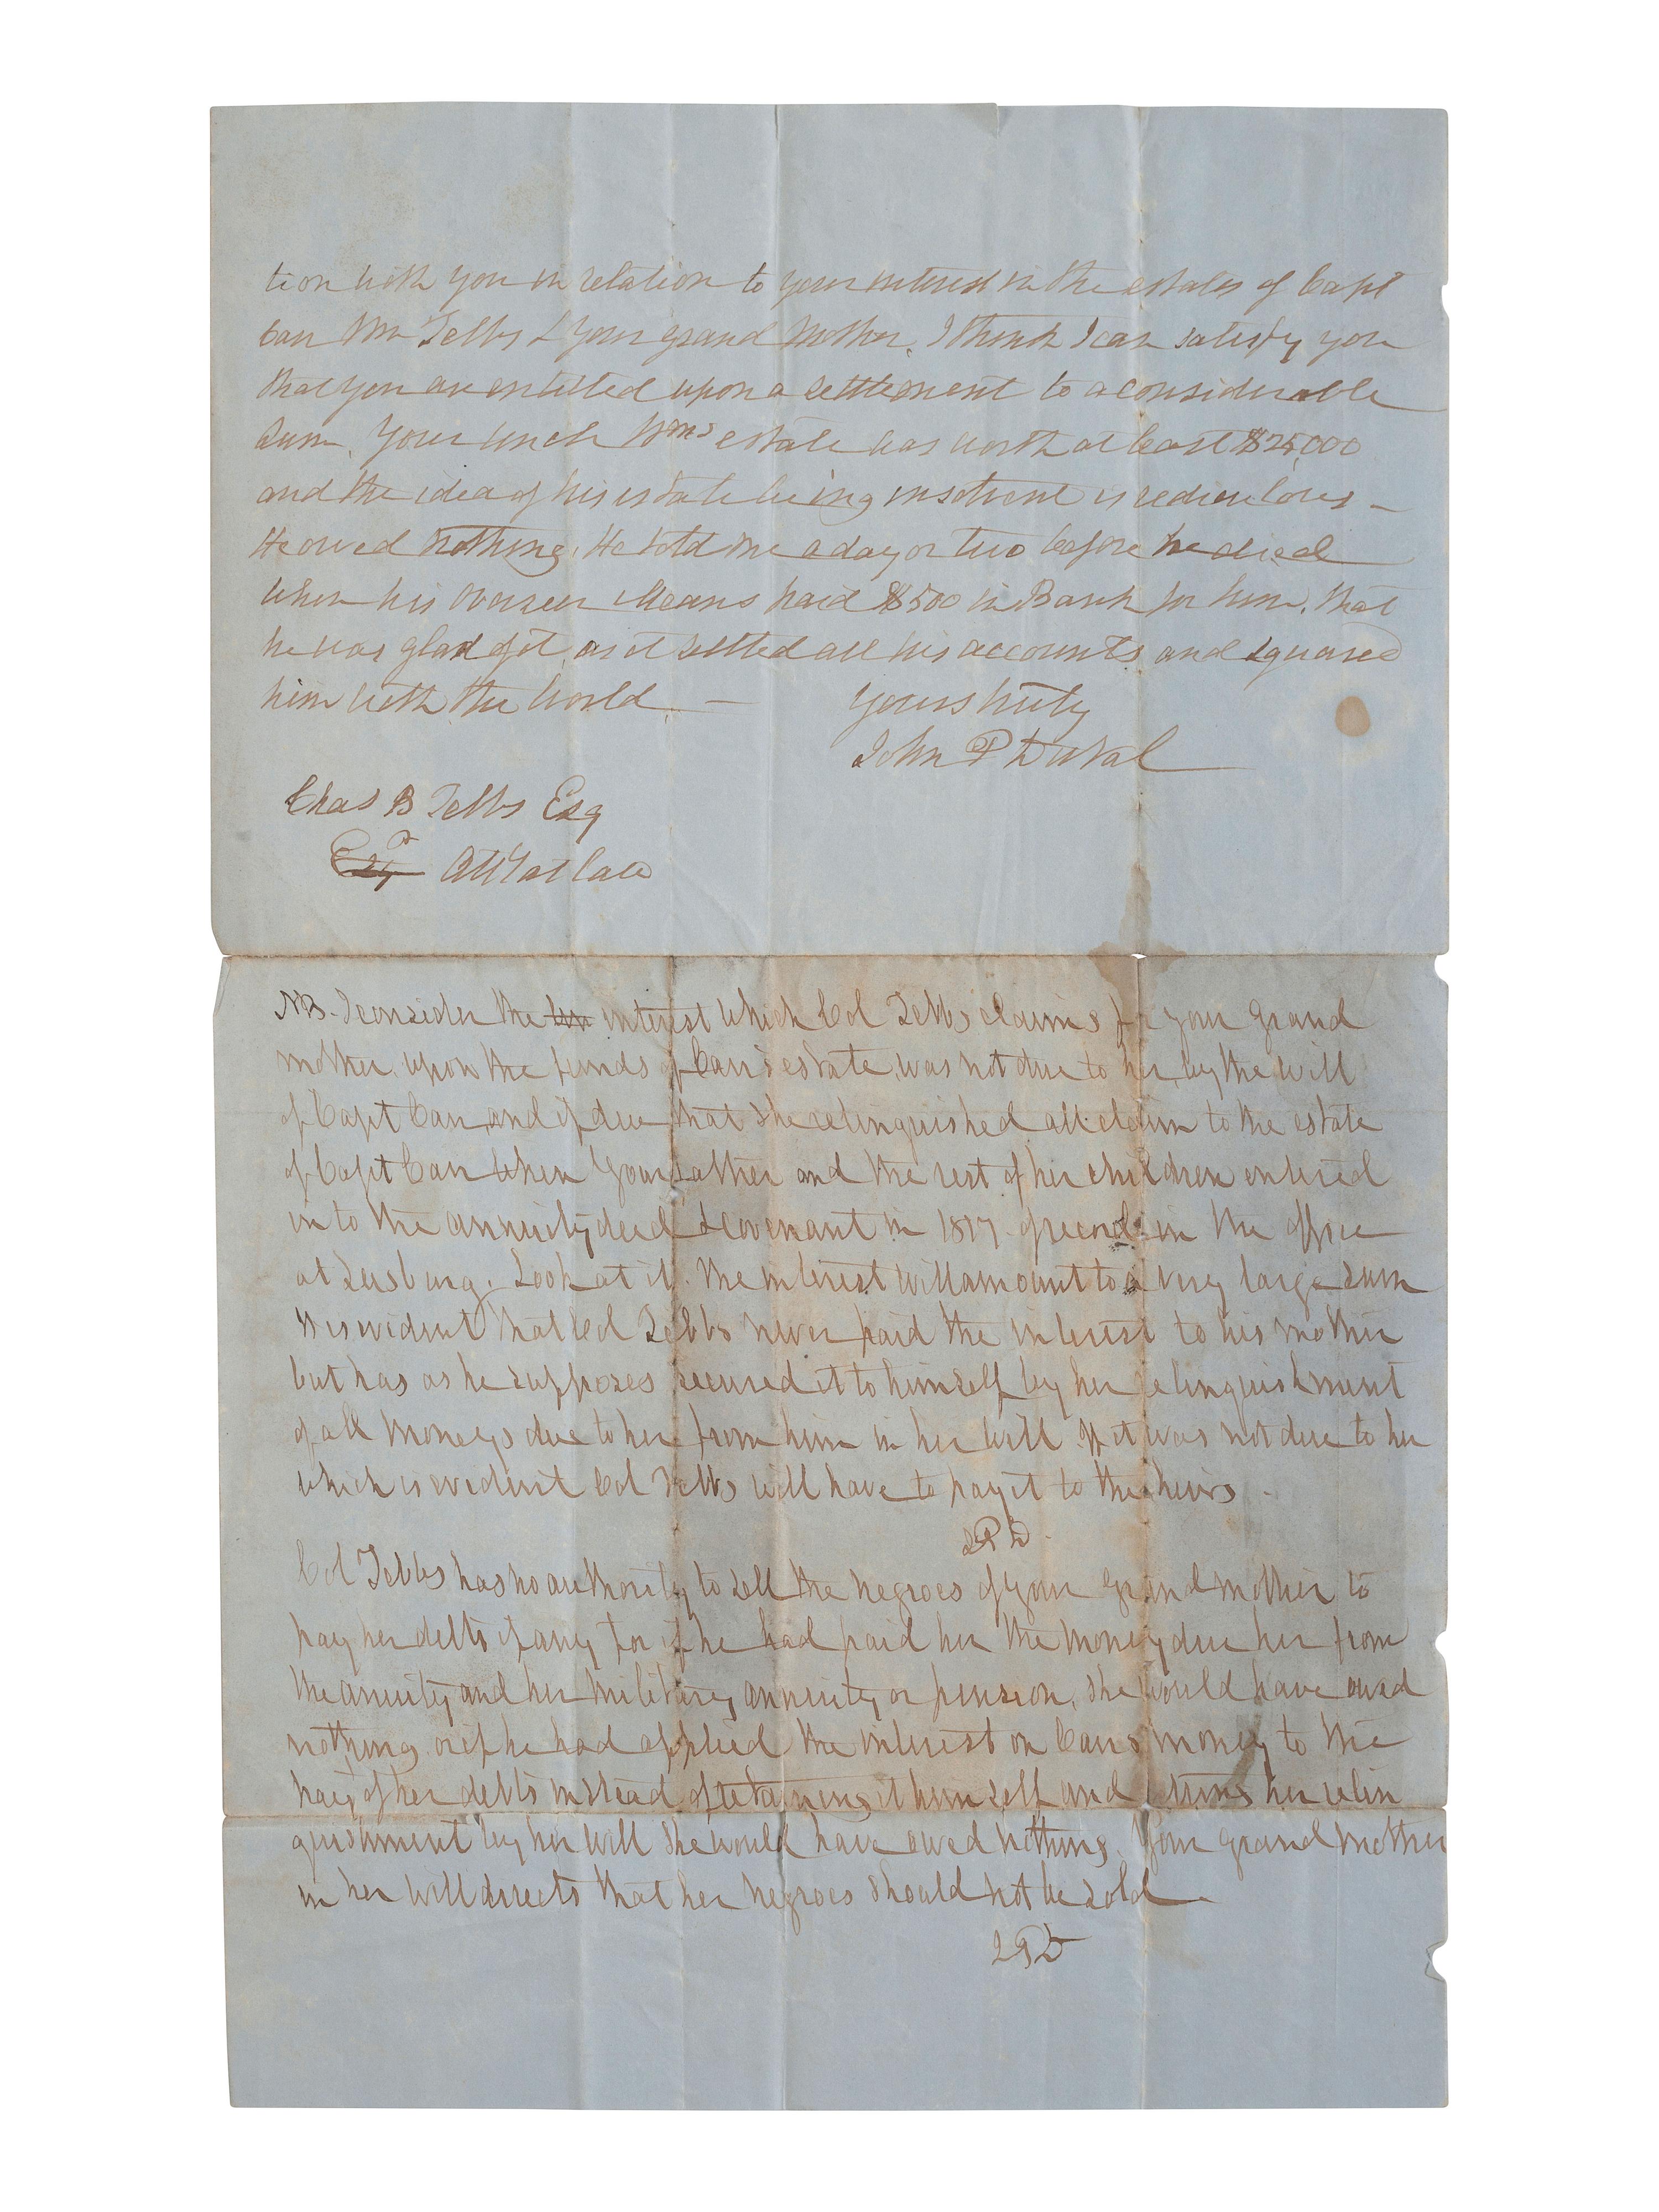 tion with you in relation to your interest in the estates of Capt
Carr Wm Tebbs & Your grand Mother. I think I can satisfy you
that you are entitled upon a settlement to a considerable
Sum. Your Uncle Wms estate was worth at least $25,000
and the idea of his estate being insolvent is rediculous –
He owed nothing. He told me a day or two before he died
when his Overseer Means paid $500 in Bank for him, that
he was glad of it, as it settled all his accounts and squared
him with the World. —
Yours truly
John P Duval
Chas B Tebbs Esq
Atty at Law
NB. I consider the interest which Col Tebbs claims for your grand
mother upon the funds of Carr's estate, was not due to her by the will
of Capt Carr, and if due that she relinquished all claim to the estate
of Capt Carr when Your father and the rest of her children entered
in to the annuity deed & covenant in 1817 of record in the office
at Leesburg. Look at it. The interest will amount to a very large sum
It is evident that Col Tebbs never paid the interest to his mother
but has as he supposes secured it to himself by her relinquishment
of all moneys due to her from him in her will. If it was not due to her
which is evident Col Tebbs will have to pay it to the heirs.
JPD
Col Tebbs has no authority to sell the negroes of your Grand mother to
pay her debts if any for if he had paid her the money due her from
the annuity and her military annuity or pension, she would have owed
nothing or if he had applied the interest on Carrs money to the
pay't of her debts instead of retaining it himself and getting her relin
quishment by her will she would have owed nothing. Your grand mother
in her will directs that her negroes should not be sold.
JPD